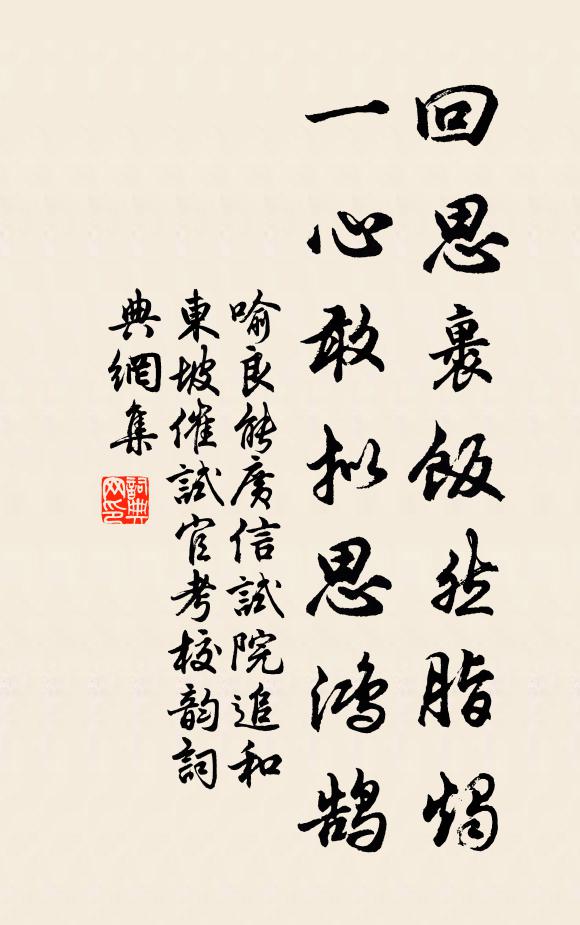 回思裹飯然脂燭
一心敢拟思鴻鹄
喻良能廣信試院追和
東坡催試官考校韵詞
典網集
詞典
网印